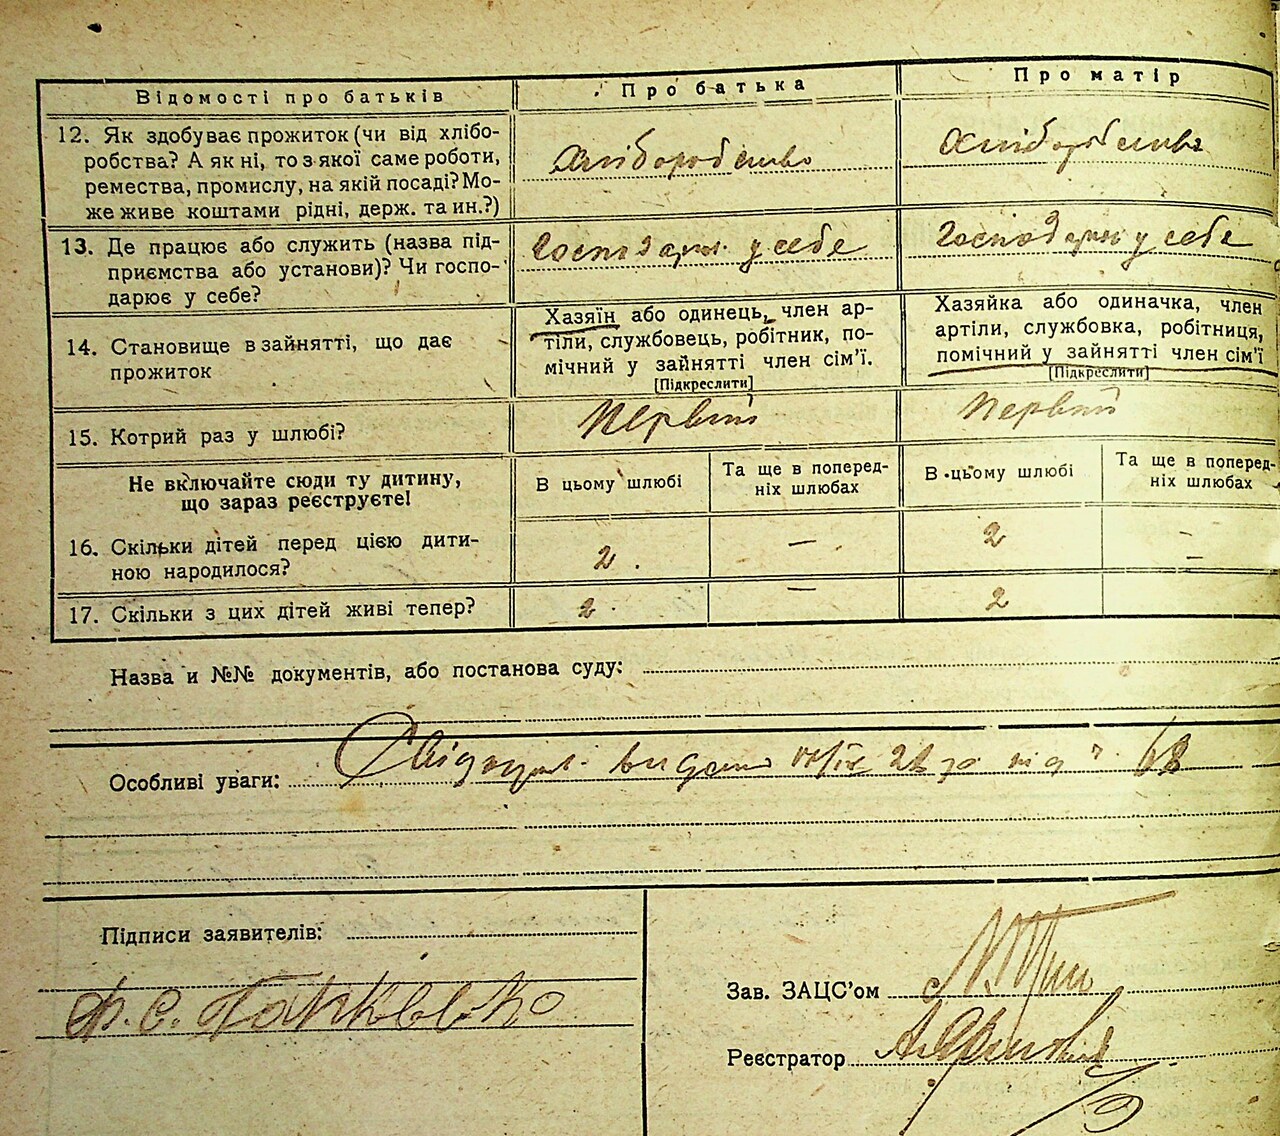 Відомості про батьків
Про батька
Про матір
12. Як здобуває прожиток (чи від хлібо-
робства? А як ні, то з якої саме роботи,
ремества, промислу, на якій посаді? Мо-
же живе коштами рідні, держ. та ин.?)
Хліборобство
Хліборобство
13. Де працює або служить (назва під-
приємства або установи)? Чи госпо-
дарює у себе?
у себе
у себе
14. Становище в зайнятті, що дає
прожиток
Хазяїн або одинець, член ар-
тіли, службовець, робітник, по-
мічний у зайнятті член сім’ї.
[Підкреслити]
Хазяйка або одиначка, член
артіли, службовка, робітниця,
помічний у зайнятті член сім’ї
[Підкреслити]
15. Котрий раз у шлюбі?
Первий
Первий
Не включайте сюди ту дитину,
що зараз реєструєте!
В цьому шлюбі
Та ще в поперед-
ніх шлюбах
В цьому шлюбі
Та ще в поперед-
ніх шлюбах
16. Скільки дітей перед цією дити-
ною народилося?
2
—
2
—
17. Скільки з цих дітей живі тепер?
2
—
2
—
Назва и №№ документів, або постанова суду:
Особливі уваги: видано 68
Підписи заявителів:
Ф. С.
Зав. ЗАЦС’ом
Реєстратор